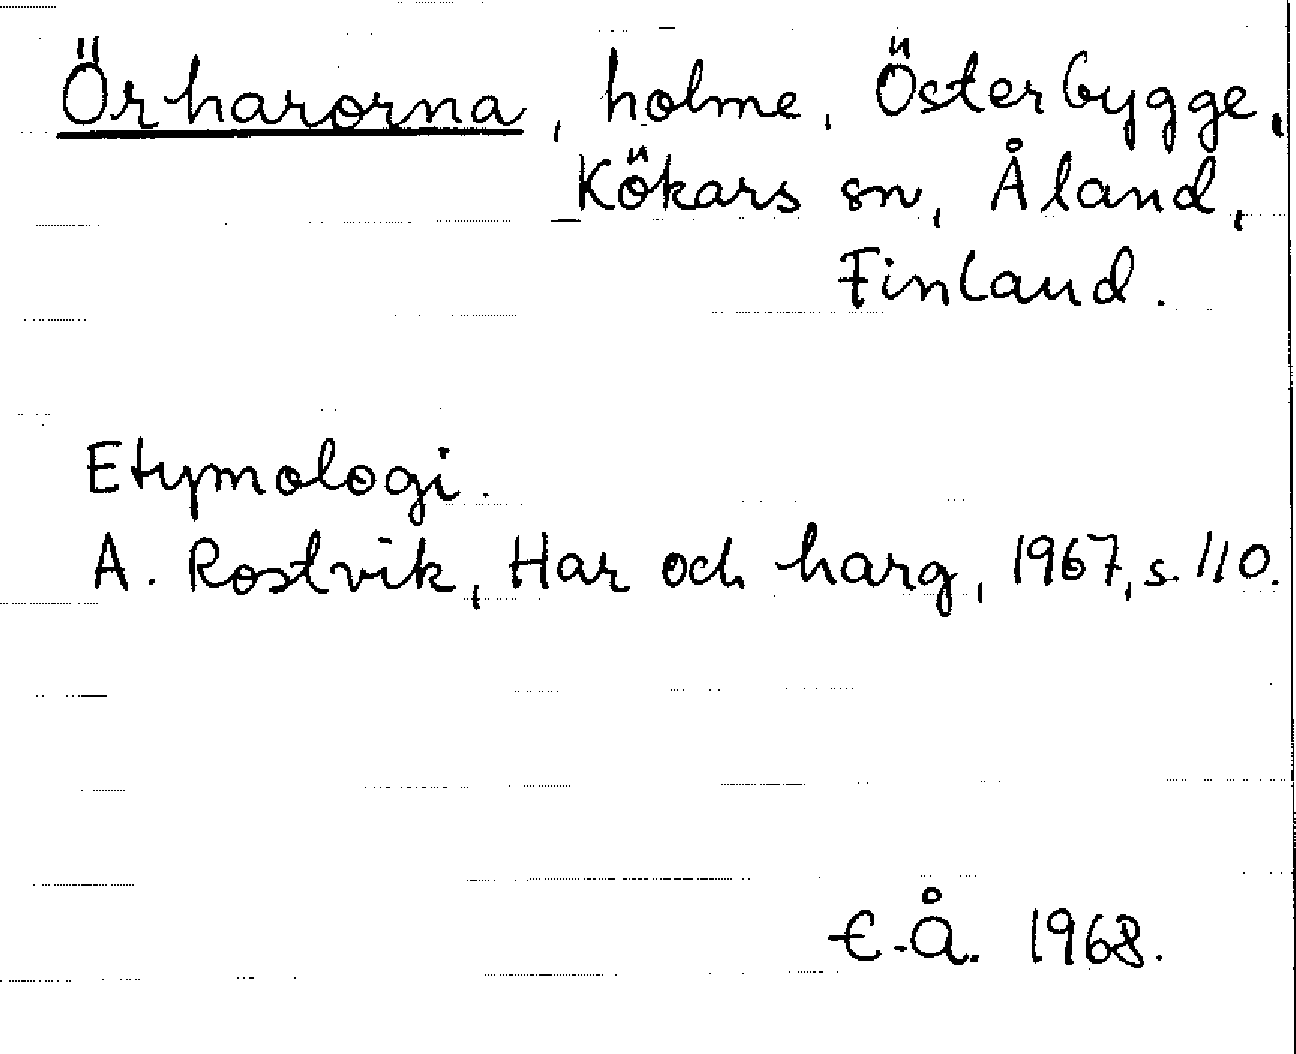 Örharorna, holme, Österbygge,
Kökars sn, Åland,
Finland.
Etymologi.
A. Rostvik, Har och harg, 1967, s. 110.
E.Å. 1968.